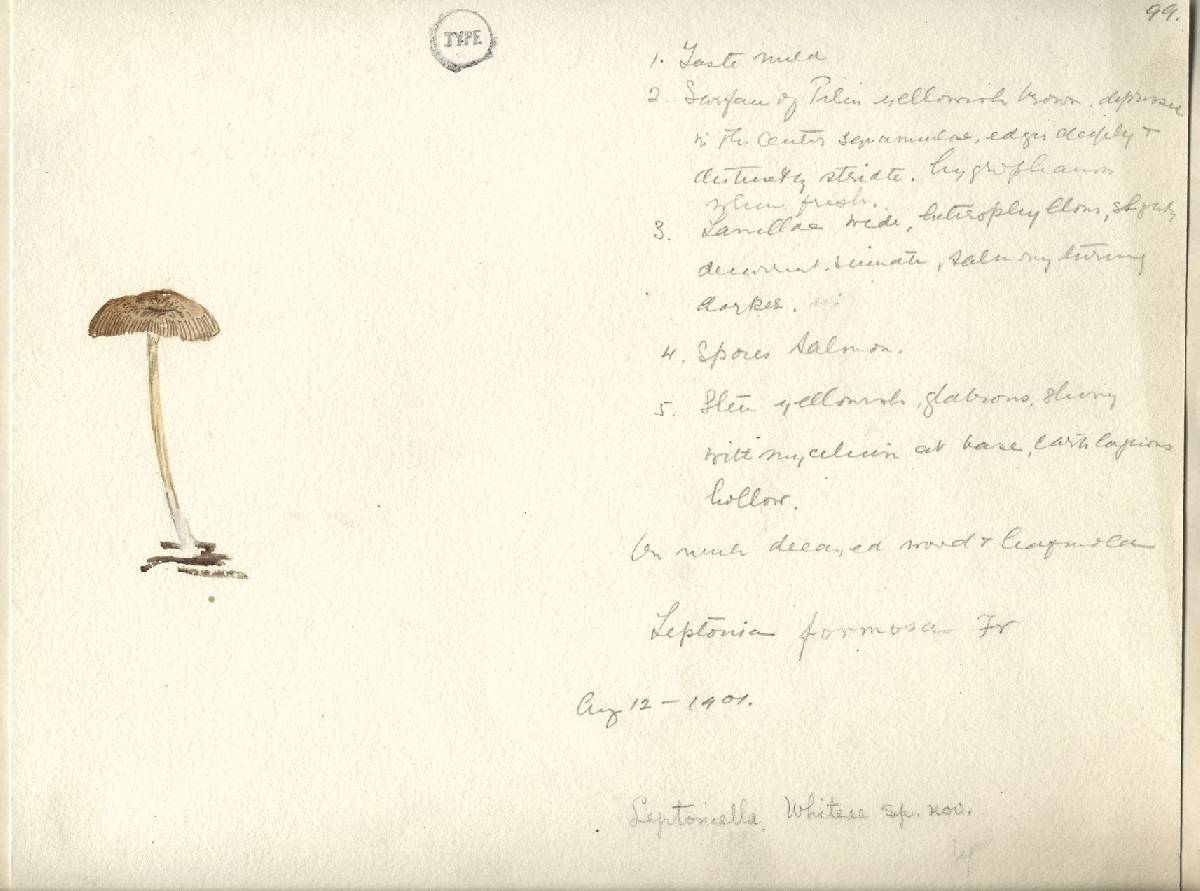 99.
TYPE
1. Taste mild
2. Surface of Pileus yellowish brown, depressed
in the center squamulose, edges deeply &
distinctly striate. hygrophanous
when fresh.
3. Lamellae wide, heterophyllous, slightly
decurrent. sinuate, salmony turning
darker.
4. Spores salmon.
5. Stem yellowish, glabrous, shiny
with mycelium at base, cartilaginous
hollow.
On much decayed wood & leafmold
Leptonia formosa Fr
Aug 12 - 1901.
Leptoniella Whiteae sp. nov.